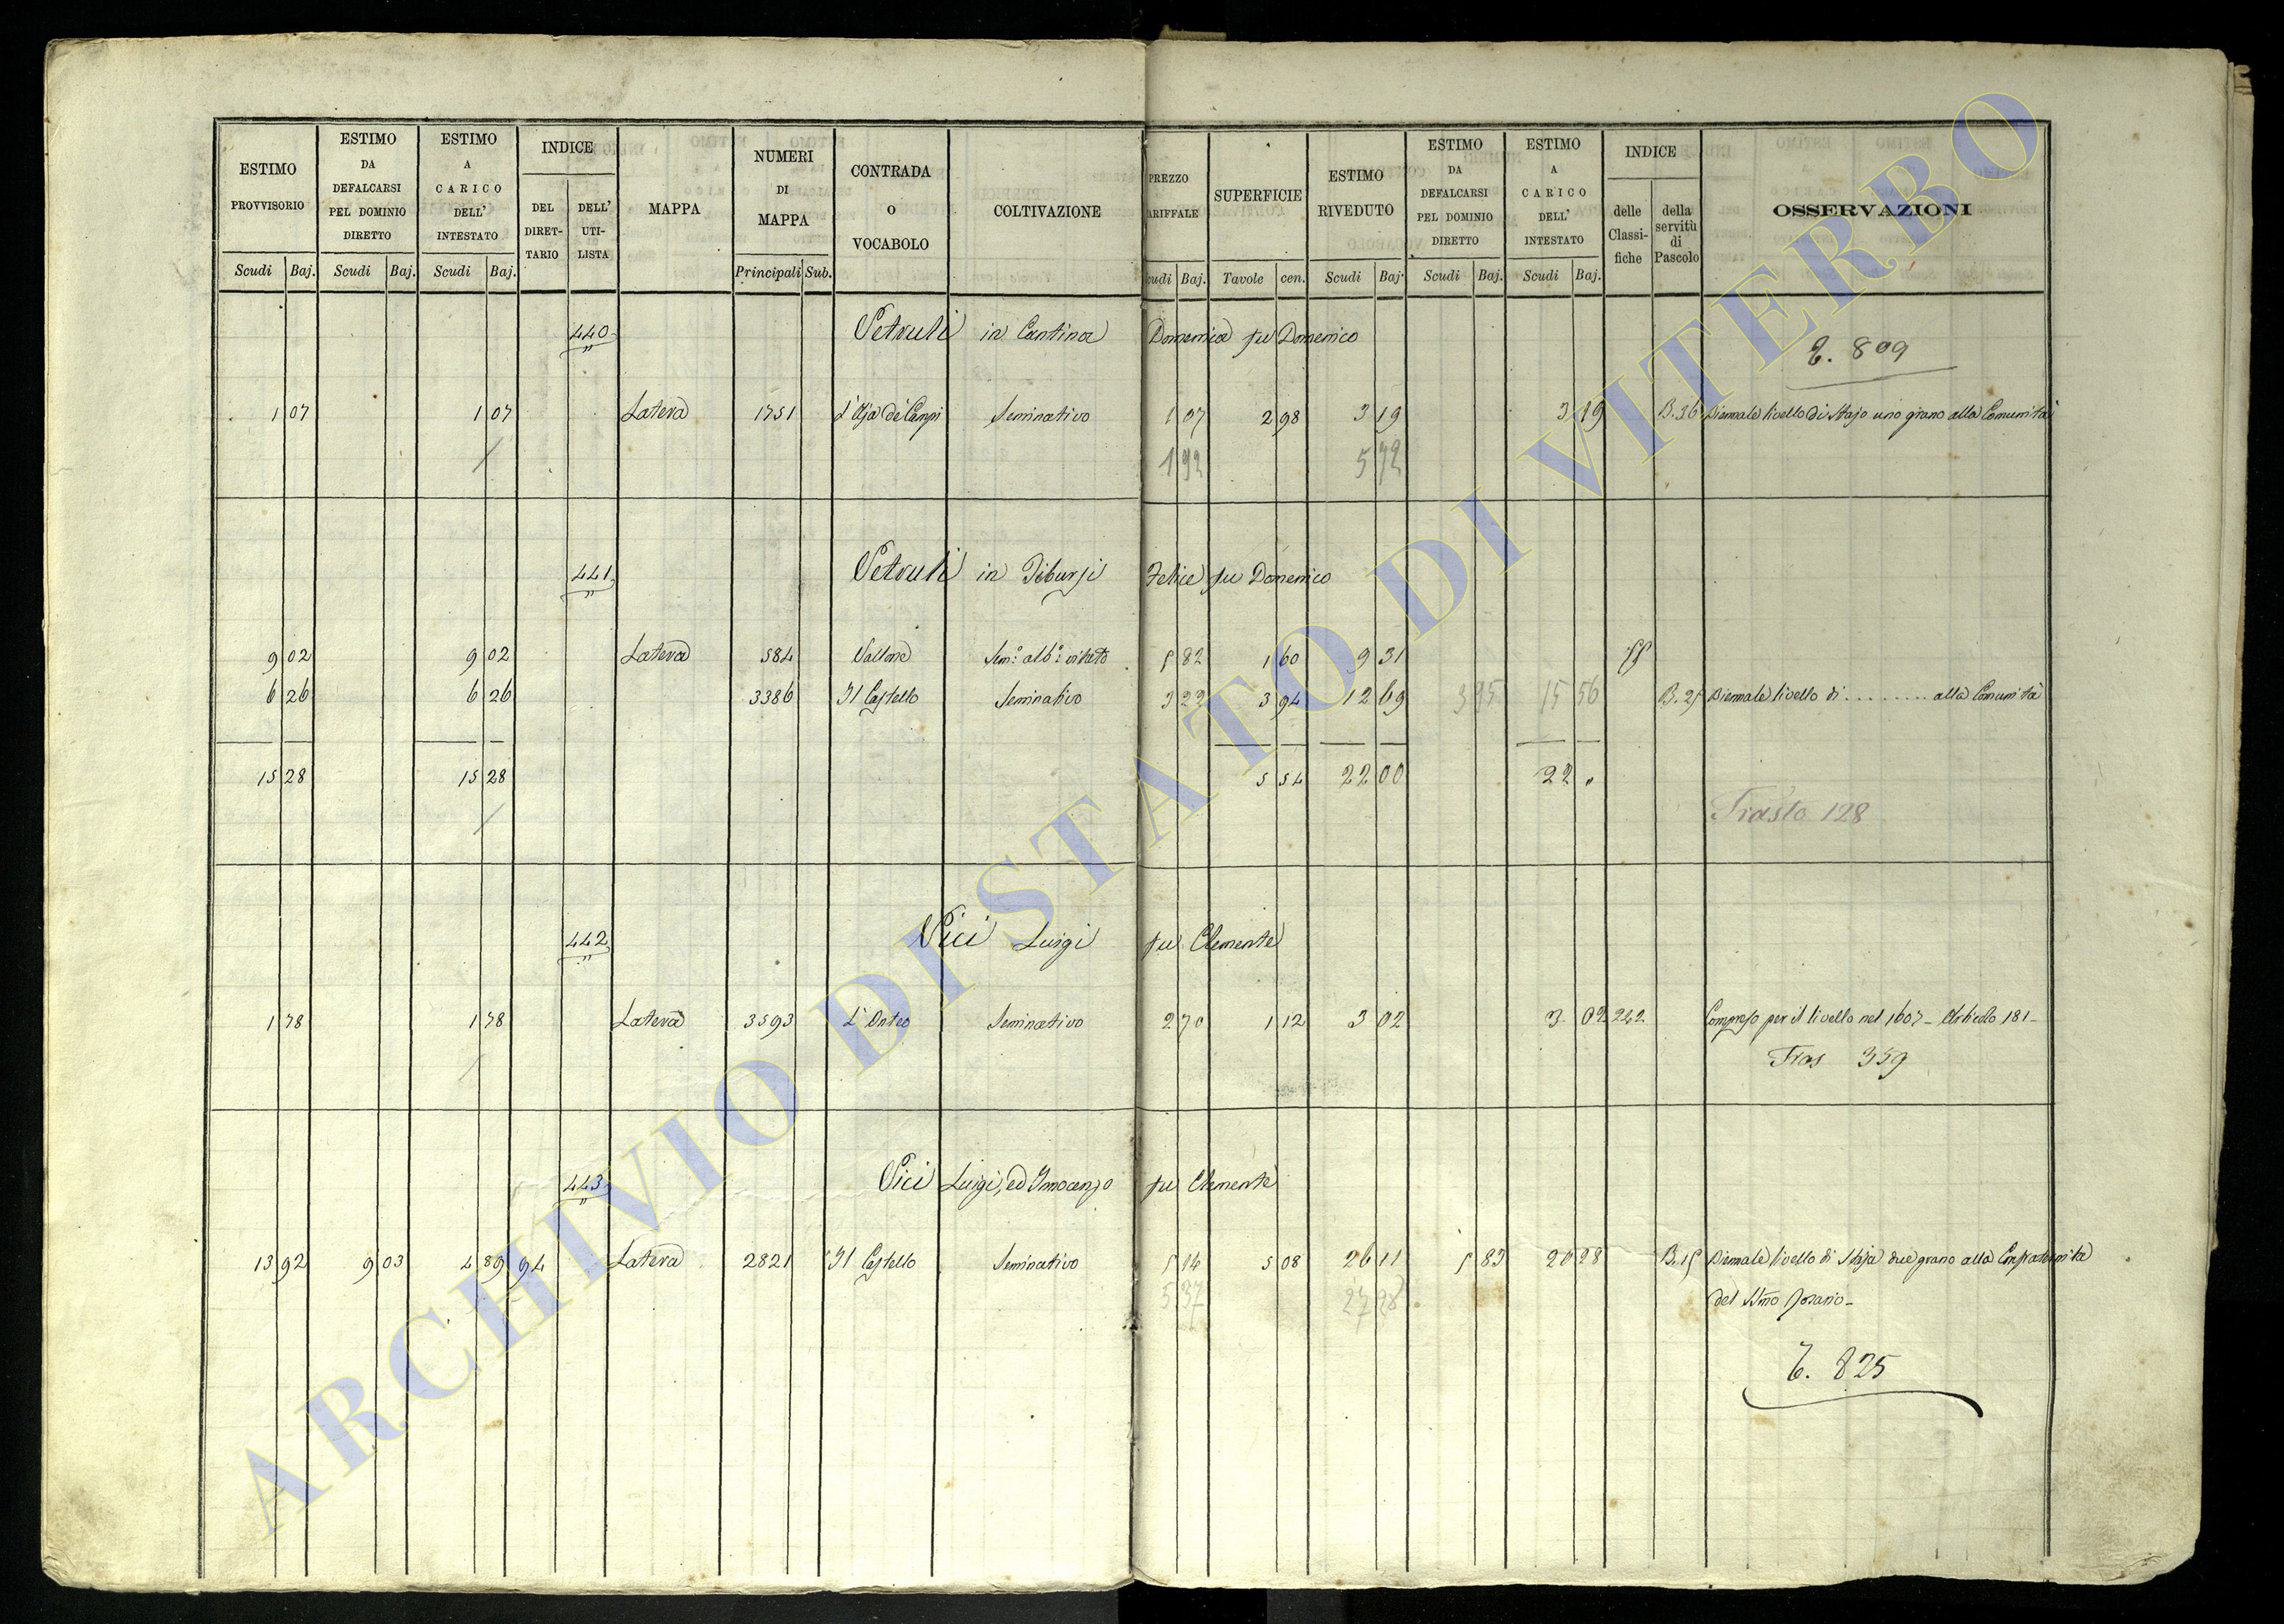 ESTIMO PROVVISORIO
ESTIMO DA DEFALCARSI PEL DOMINIO DIRETTO
ESTIMO A CARICO DELL' INTESTATO
INDICE
DEL DIRET-TARIO
DELL' UTI-LISTA
MAPPA
NUMERI DI MAPPA
CONTRADA O VOCABOLO
COLTIVAZIONE
PREZZO ARIFFALE
SUPERFICIE
ESTIMO RIVEDUTO
ESTIMO DA DEFALCARSI PEL DOMINIO DIRETTO
ESTIMO A CARICO DELL' INTESTATO
INDICE
delle Classi-fiche
della servitù di Pascolo
OSSERVAZIONI
Scudi Baj. Scudi Baj. Scudi Baj. Principali Sub. cudi Baj. Tavole cen. Scudi Baj. Scudi Baj. Scudi Baj.
440 Petruli in Cantina Domenica fu Domenico
T. 809
1 07 1 07 Latera 1751 L'Aja de Campi Seminativo 1 07 2 98 3 19 3 19 B. 36 Biennale livello di Stajo uno grano alla Comunità
1 92 5 72
441 Petruli in Tiburzi Felice fu Domenico
9 02 9 02 Latera 584 Vallone Sem.o alb.o vitato 5 82 1 60 9 31
6 26 6 26 3386 Il Castello Seminativo 3 22 3 94 12 69 3 95 15 56 B. 25 Biennale livello di ........ alla Comunità
15 28 15 28 5 54 22 00 22 "
Traslo 128
442 Pici Luigi fu Clemente
1 78 1 78 Latera 3593 Seminativo 2 70 1 12 3 02 3 02 242 Compreso per il livello nel 1607 - Articolo 181 -
Tras 359
443 Pici Luigi, ed Innocenzo fu Clemente
13 92 9 03 4 89 94 Latera 2821 Il Castello Seminativo 5 14 5 08 26 11 5 83 20 28 B. 15 Biennale livello di Staja due grano alla Confraternita
5 37 27 28 del SSmo Rosario -
T. 825
ARCHIVIO DI STATO DI VITERBO